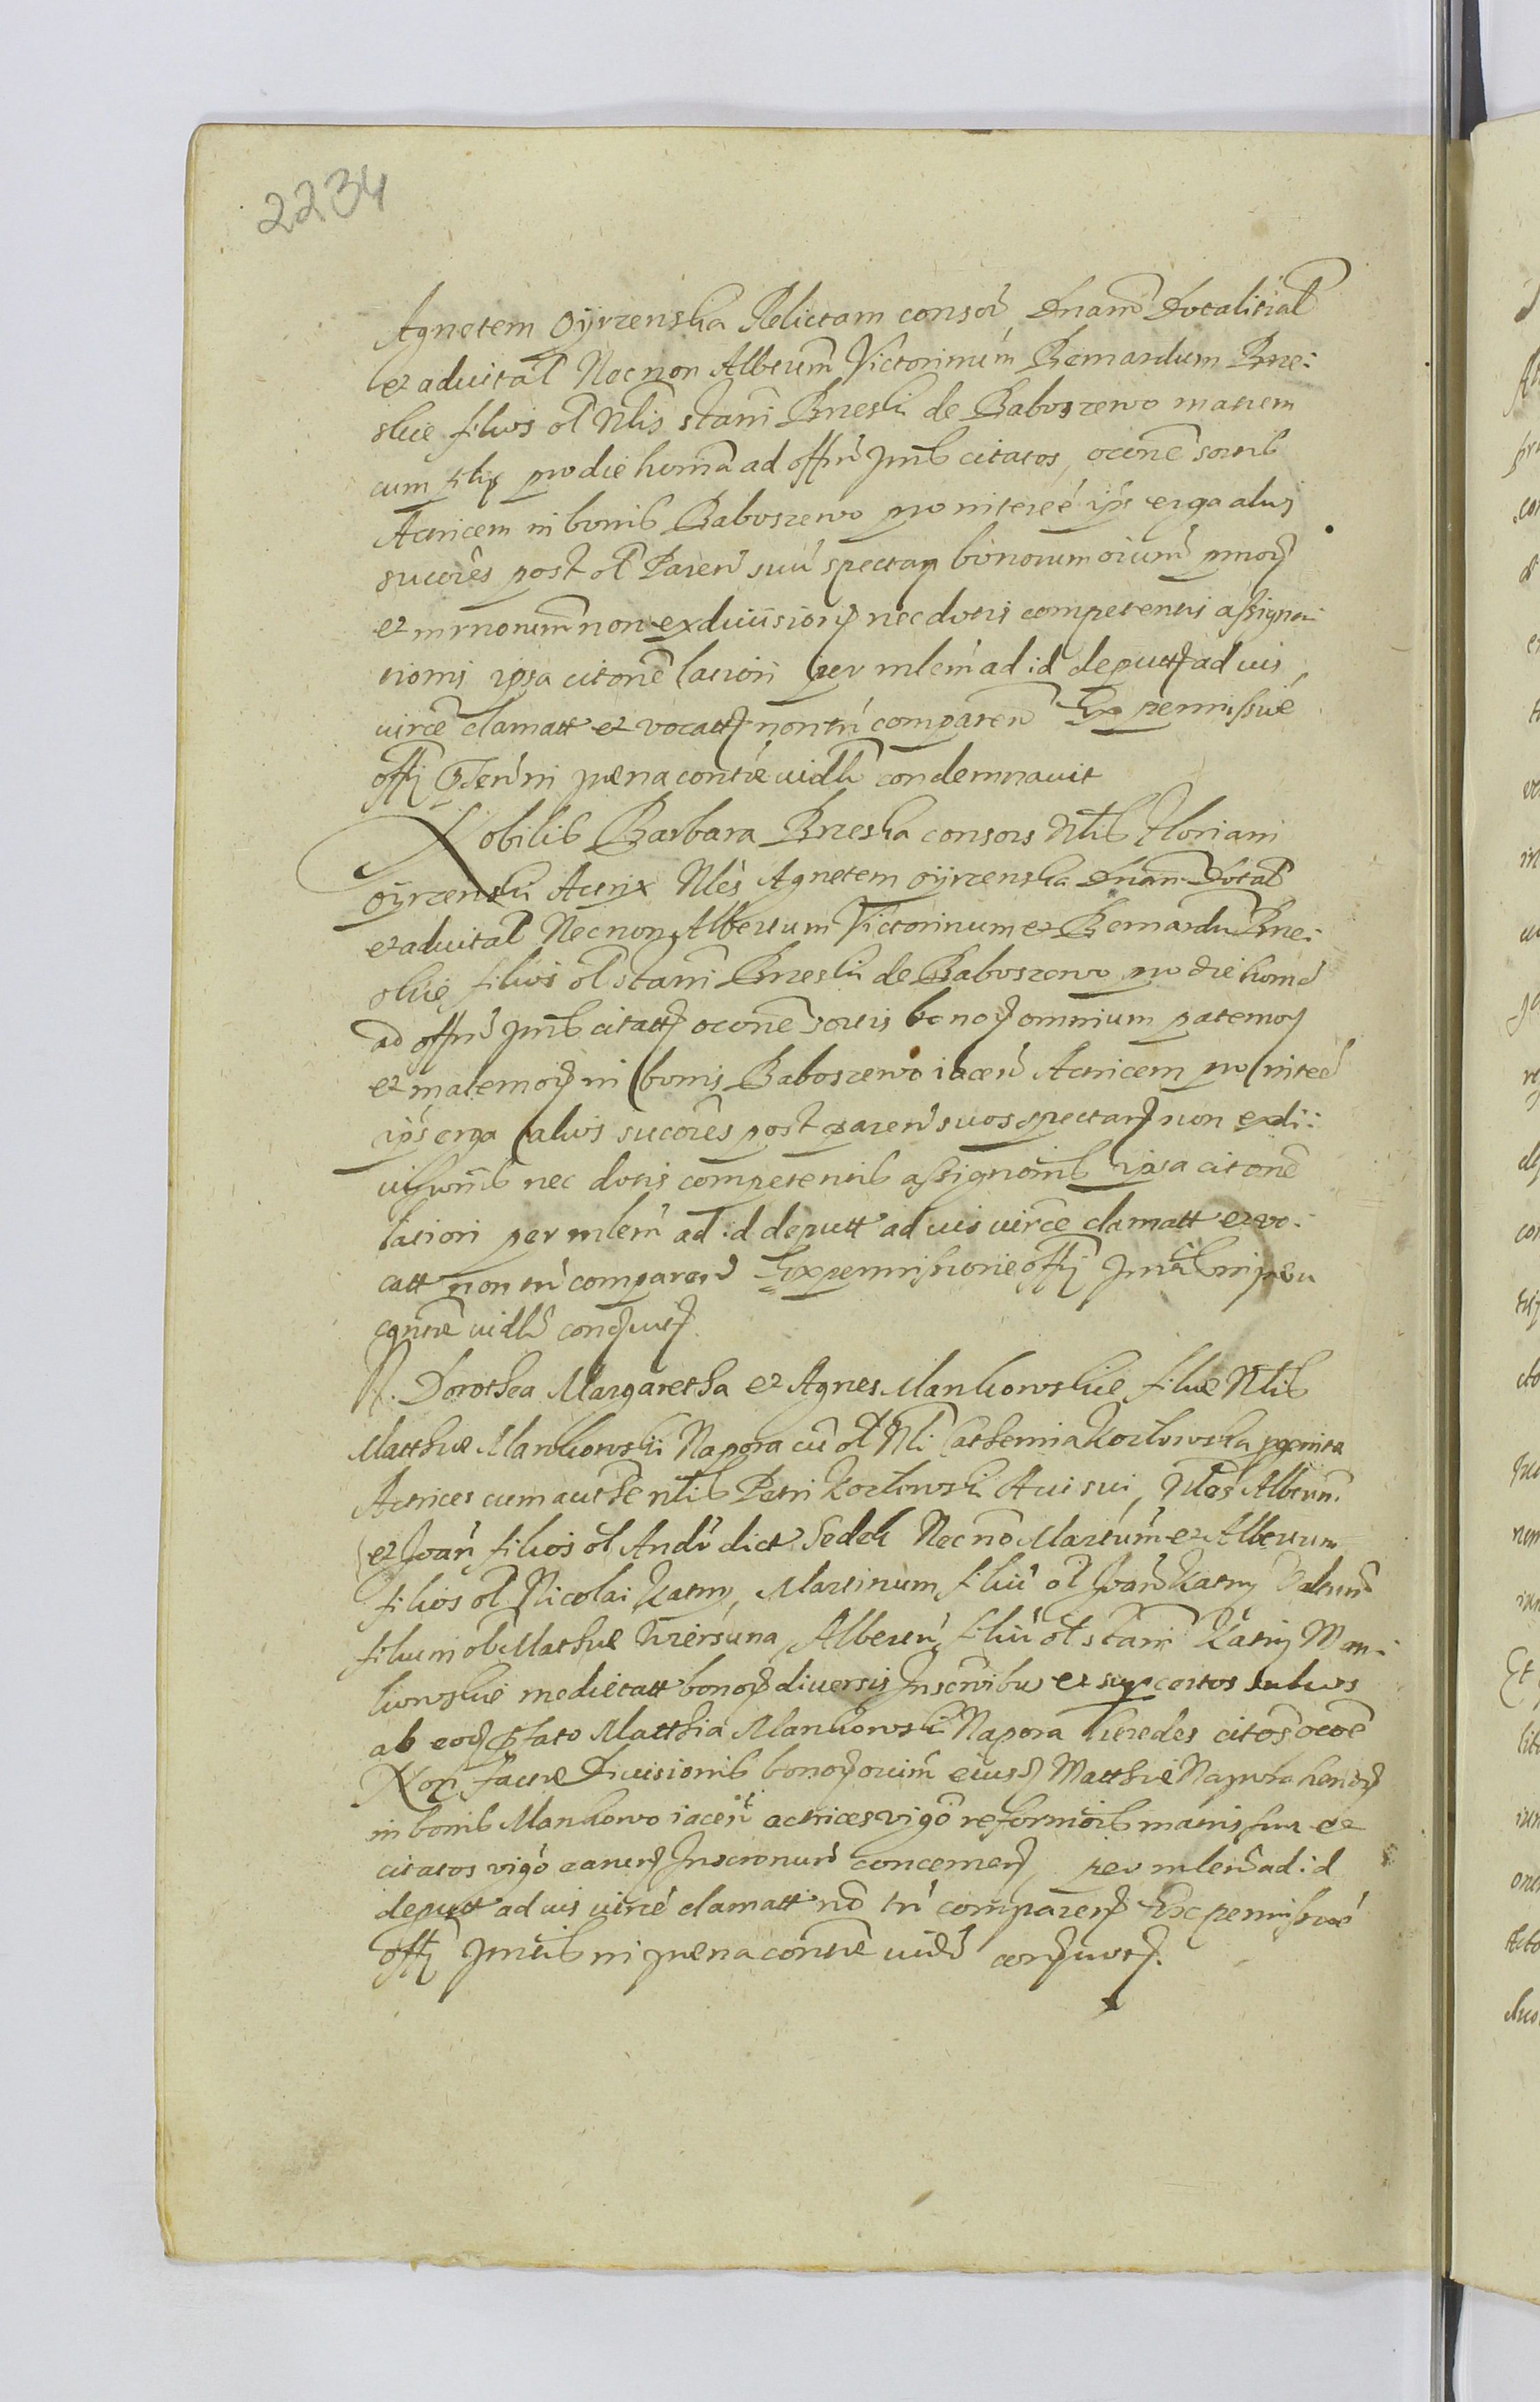 2234
Agnetem Oÿrzenska Relictam consor Dnam Dotalitial
et aduital Nec non Albtum Victorinum Bernardum Brze:
skie filios ol Nlis Stani Brzeski de Baboszewo matrem
cum filijs pro die hodierna ad offm citatos, ocone sortis
Actricem in bonis Baboszewo pro interee ips erga alios
sucores post ol Paren suu spectan bonorum oium
et mrnorum non exdiuision nec dotis competentis assigna:
tionis ipsa citone latiori per mlem ad id deputt ad uis
uirce clamatt et vocatt non tn comparen Ex permissue
offij in pena contie uidlt condemnauit
Nobilis Barbara Brzeska consors Nlis Floriani
Oÿrzenski Actrix Nles Agnetem Oÿrzenska Dnam Dotal
et aduital Nec non Albertum Victorinum et Bernardu Brze:
skie filios ol Stani Brzeski de Baboszewo pro die
ad offm citatt ocone sortis bonor omnium paternor
et maternor in bonis Baboszewo iacen Actricem pro interee
ips erga alios sucores post paren suos spectan non exdi:
uisionis nec dotis competentis assignonis ipsa citone
latiori per mlem ad id deputt ad uis uirce clamatt et vo:
catt non tn comparen Ex permissione offij in pena
contie uidlt
N. Dorothea Margaretha et Agnes Mankowskie filiæ Nlis
Matthiæ Mankowski Napora cu ol Nli Catherina Kozlowska
Actrices cum authe nlis Petri Kozlowski Aui sui, Nles Albertum
et Joan filios ol Andr dict Sedek Nec no Martinum et Albertum
filios ol Nicolai Katny, Martinum filiu ol Joan Katny
filium ol Mathiæ Wiersuna, Albertu filiu ol Stani Katny Man:
kowskie medietatt bonor diuersis Inscronibus et
ab eod pfato Matthia Mankowski Napora heredes citos ocone
Non factæ Diuisionis bonor oium eiusd Matthiæ Napora
in bonis Mankowo iacen actrices vigo reformonis matris suæ et
citatos vigo earund Inscronum concernen, per mlem ad id
deputt ad uis uirce clamatt no tn comparen Ex permissue
offij in pena contie uidlt